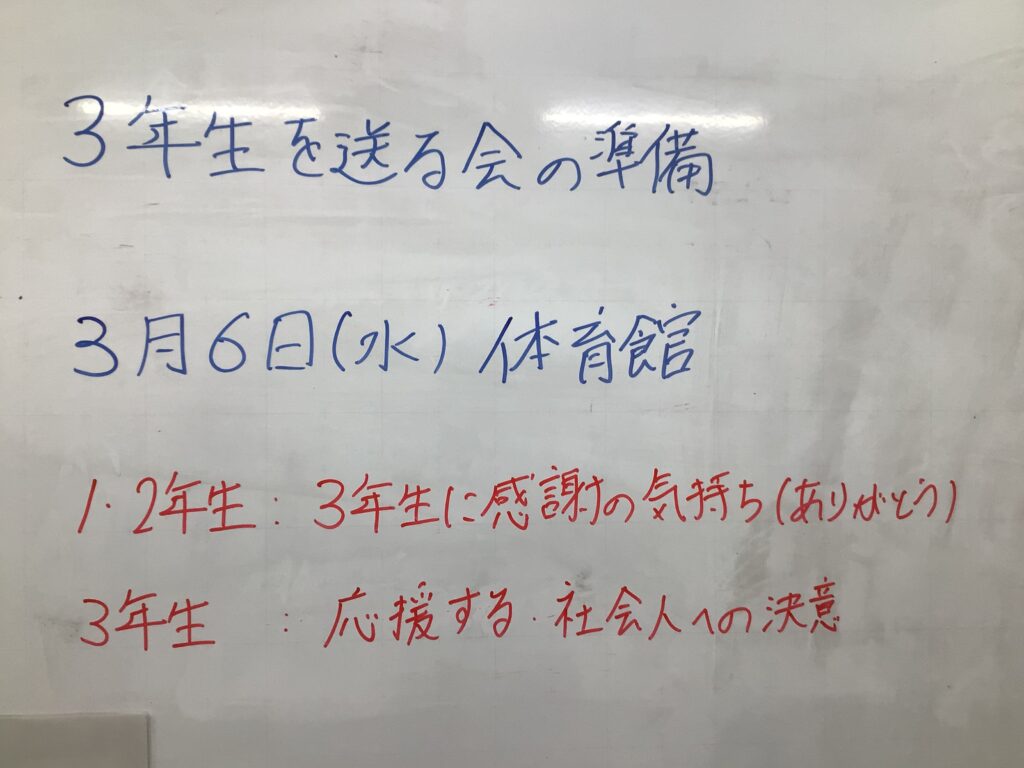 3年生を送る会の準備
3月6日(水) 体育館
1・2年生:3年生に感謝の気持ち(ありがとう)
3年生 :応援する・社会人への決意